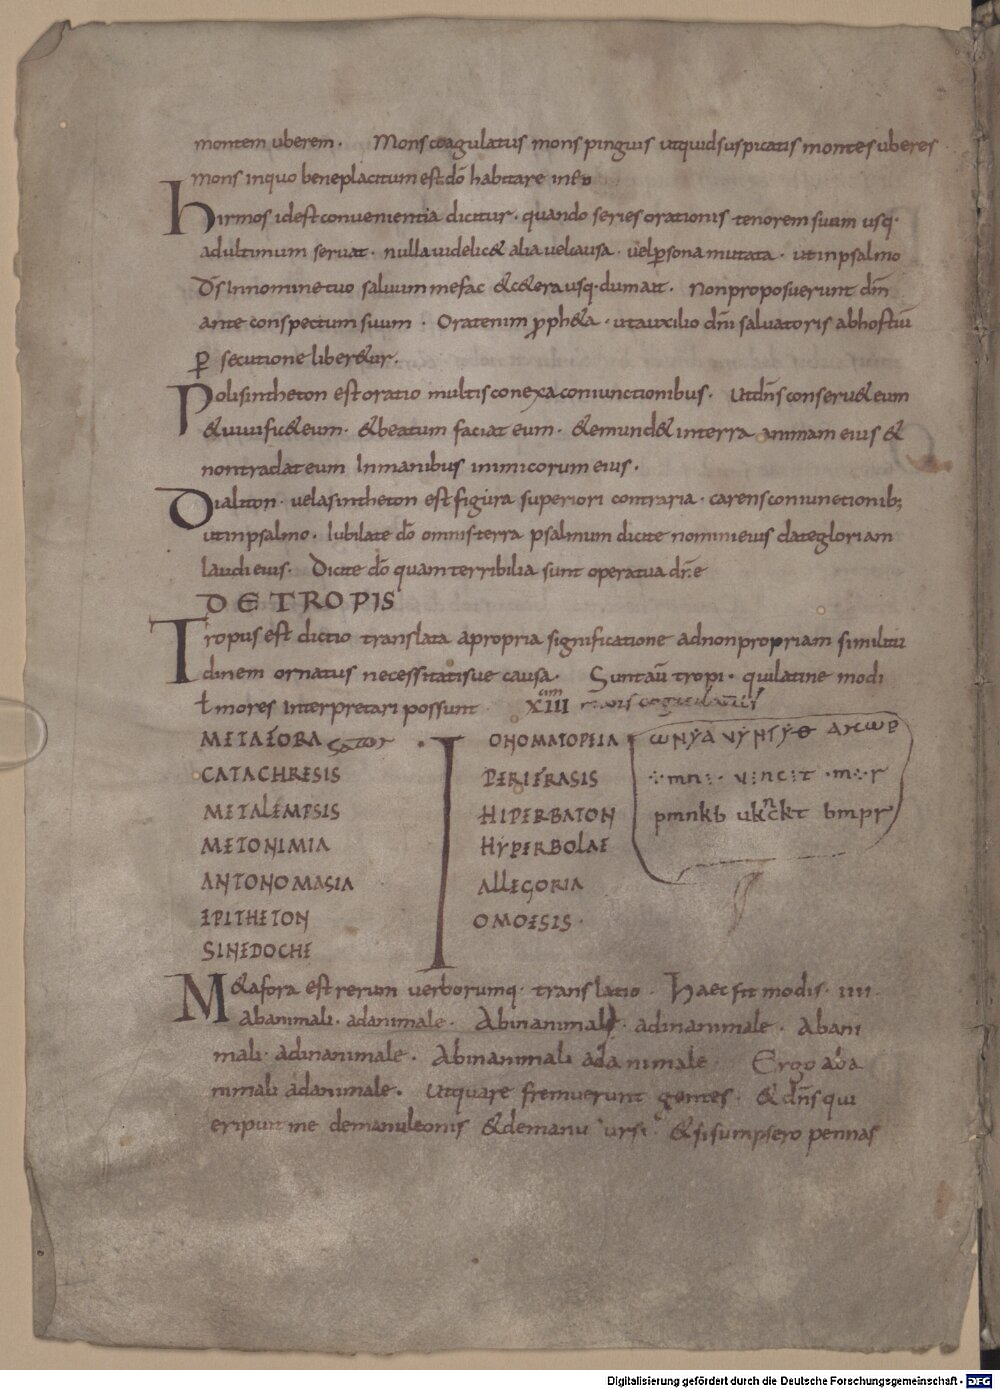 montem uberem. Mons coagulatus mons pinguis utquid suspicatis montes uberes
mons inquo beneplacitum est dō habitare in eo
Hirmos idest convenientia dicitur · quando series orationis tenorem suum usq·
adultimum servat · nulla videlic& alia vel causa · vel ꝑsona mutata · ut in psalmo
Dˉs In nomine tuo salvum me fac &c&era usq· dum ait. Non proposuerunt dm̄
ante conspectum suum · Orat enim ꝓph&a · ut auxilio dn̄i salvatoris ab hostiū
ꝑ secutione liber&ur.
Polisintheton est oratio multis conexa coniunctionibus. Ut dn̄s conserv& eum
& vivific& eum · & beatum faciat eum · & emund& in terra animam eius &
non tradat eum In manibus inimicorum eius.
Dialiton · vel asintheton est figura superiori contraria · carens coniunctionib;
ut in psalmo · Iubilate dō omnis terra psalmum dicite nomini eius date gloriam
laudi eius. Dicite dō quam terribilia sunt opera tua dn̄e
DE TROPIS
Tropus est dictio translata a propria significatione ad non propriam similitu
dinem ornatus necessitatisue causa. Sunt aū tropi · qui latine modi
ł mores Interpretari possunt XIII mons coagulatus
METAFORA Sator · ONOMATOPEIA
CATACHRESIS PERIFRASIS ·:mn:· v:nc:t ·m·:r
METALEMPSIS HIPERBATON pmnkb uknckt bmpr
METONIMIA HYPERBOLAE
ANTONOMASIA ALLEGORIA
EPITHETON OMOESIS·
SINEDOCHE
M&afora est rerum verborumq· translatio · Haec fit modis · IIII·
ab animali · ad animale · Ab inanimale · ad inanimale · Ab ani
mali · ad inanimale · Ab inanimali ad animale Ergo ab a
nimali ad animale. Ut quare fremuerunt gentes · & dn̄s qui
eripuit me de manu leonis & de manu ursi · & si sumpsero pennas
Digitalisierung gefördert durch die Deutsche Forschungsgemeinschaft - DFG